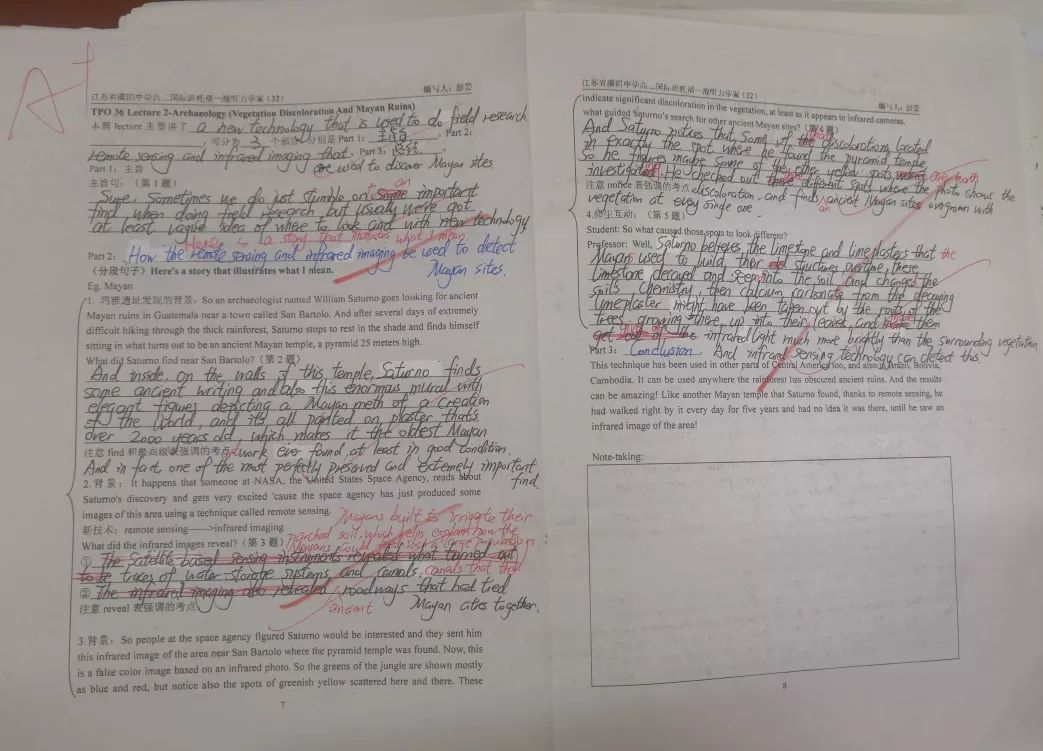 A+
江苏省溧阳中学高二国际班托福一战听力学案（32） 编写人：彭芸
TPO 36 Lecture 2-Archaeology (Vegetation Discoloration And Mayan Ruins)
本篇 lecture 主要讲了 a new technology that is used to do field research
可分为 3 个部分，分别是 Part 1: 主旨 Part 2:
remote sensing and infrared imaging that are used to discover Mayan sites. Part 3: 总结
Part 1：主旨
主旨句：（第 1 题）
Sure, Sometimes we do just stumble on an important
find when doing field research, but usually we've got
at least vague idea of where to look and with new technology
Here's a story that illustrates what I mean.
Part 2: How the remote sensing and infrared imaging be used to detect
Mayan sites.
（分段句子）Here's a story that illustrates what I mean.
Eg. Mayan
1. 玛雅遗址发现的背景：So an archaeologist named William Saturno goes looking for ancient
Mayan ruins in Guatemala near a town called San Bartolo. And after several days of extremely
difficult hiking through the thick rainforest, Saturno stops to rest in the shade and finds himself
sitting in what turns out to be an ancient Mayan temple, a pyramid 25 meters high.
What did Saturno find near San Bartolo?（第 2 题）
And inside, on the walls of this temple, Saturno finds
some ancient writing and also this enormous mural with
elegant figures depicting a Mayan meth of a creation
of the world, and it's all painted on plaster that's
over 2000 years old, which makes it the oldest Mayan
注意 find 和最高级表强调的考点 artwork ever found, at least in good condition.
And in fact, one of the most perfectly preserved and extremely important
find.
2. 背景：It happens that someone at NASA, the United States Space Agency, reads about
Saturno's discovery and gets very excited 'cause the space agency has just produced some
images of this area using a technique called remote sensing.
新技术：remote sensing——>infrared imaging
Mayans built to irrigate their
parched soil, which helps explain how the
What did the infrared images reveal?（第 3 题） Mayans could feed such a large population.
① The Satellite based sensing instruments revealed what turned out
to be traces of water-storage systems, and canals, canals that that
② The infrared imaging also revealed roadways that had tied
ancient
注意 reveal 表强调的考点 Mayan cities together.
3.背景：So people at the space agency figured Saturno would be interested and they sent him
this infrared image of the area near San Bartolo where the pyramid temple was found. Now, this
is a false color image based on an infrared photo. So the greens of the jungle are shown mostly
as blue and red, but notice also the spots of greenish yellow scattered here and there. These
7
江苏省溧阳中学高二国际班托福一战听力学案（32） 编写人：彭芸
indicate significant discoloration in the vegetation, at least as it appears to infrared cameras.
what guided Saturno's search for other ancient Mayan sites?（第 4 题）
And Saturno notices that some of the discoloration located
in exactly the spot where he found the pyramid temple
so he figures maybe some of the other yellow spots, were worth
investigated. He checked out three different spots where the photo shows the
注意 notice 表强调的考点 discoloration, and finds ancient Mayan sites overgrown with
vegetation at every single one.
4.师生互动：（第 5 题）
Student: So what caused those spots to look different?
Professor: Well, Saturno believes, the limestone and limeplasters that the
Mayans used to build, their structures overtime, these
limestone decayed and seep into the soil, and changed the
soil's chemistry, then calcium carbonate from the decaying
limeplaster might have been taken out by the roots of the
trees growing there up into their leaves, and make them
infrared light much more brightly than the surrounding vegetation
Part 3: Conclusion. And infrared sensing technology can detect this
This technique has been used in other parts of Central America too, and also in Brazil, Bolivia,
Cambodia. It can be used anywhere the rainforest has obscured ancient ruins. And the results
can be amazing! Like another Mayan temple that Saturno found, thanks to remote sensing, he
had walked right by it every day for five years and had no idea it was there, until he saw an
infrared image of the area!
Note-taking:
8